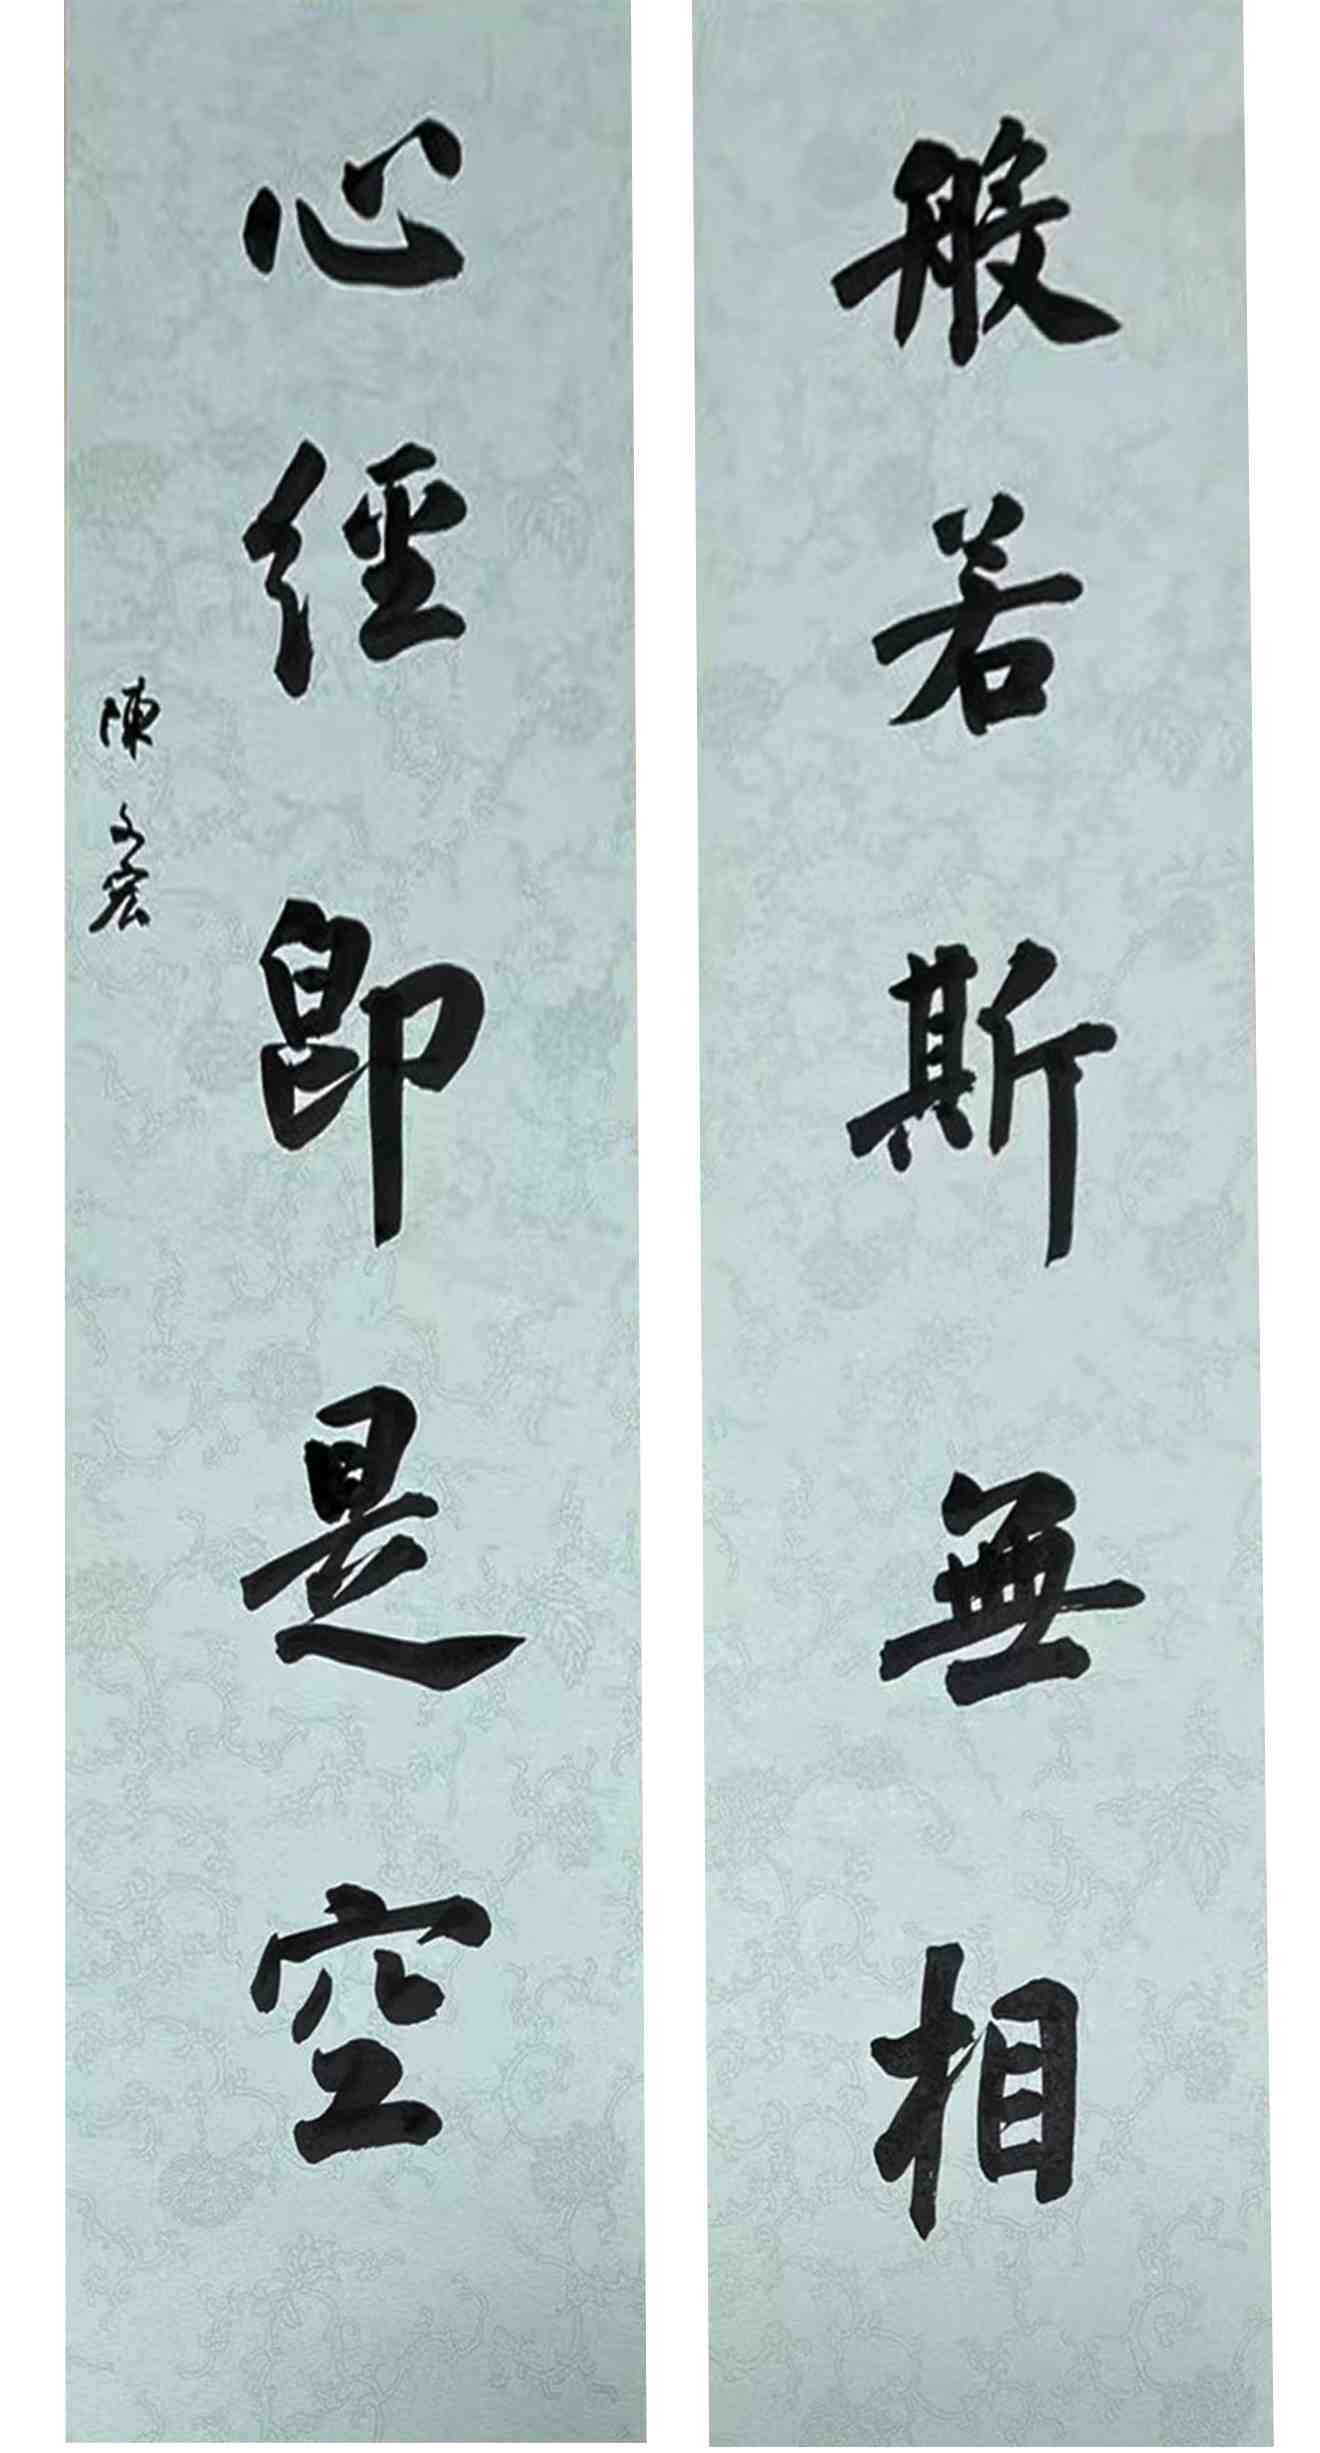 般若斯無相
心經即是空
陳文宏